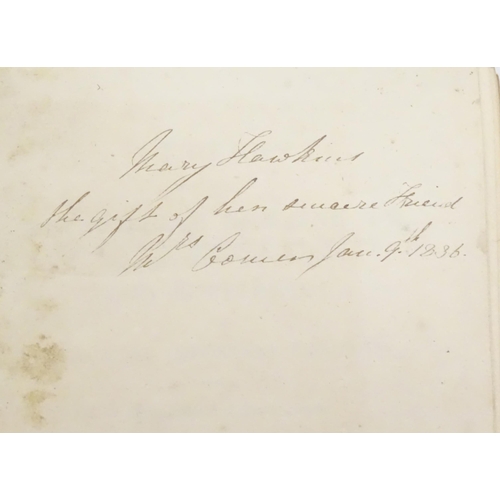 Mary Hawkins
the gift of her sincere Friend
Mrs Jan. 9th 1836.